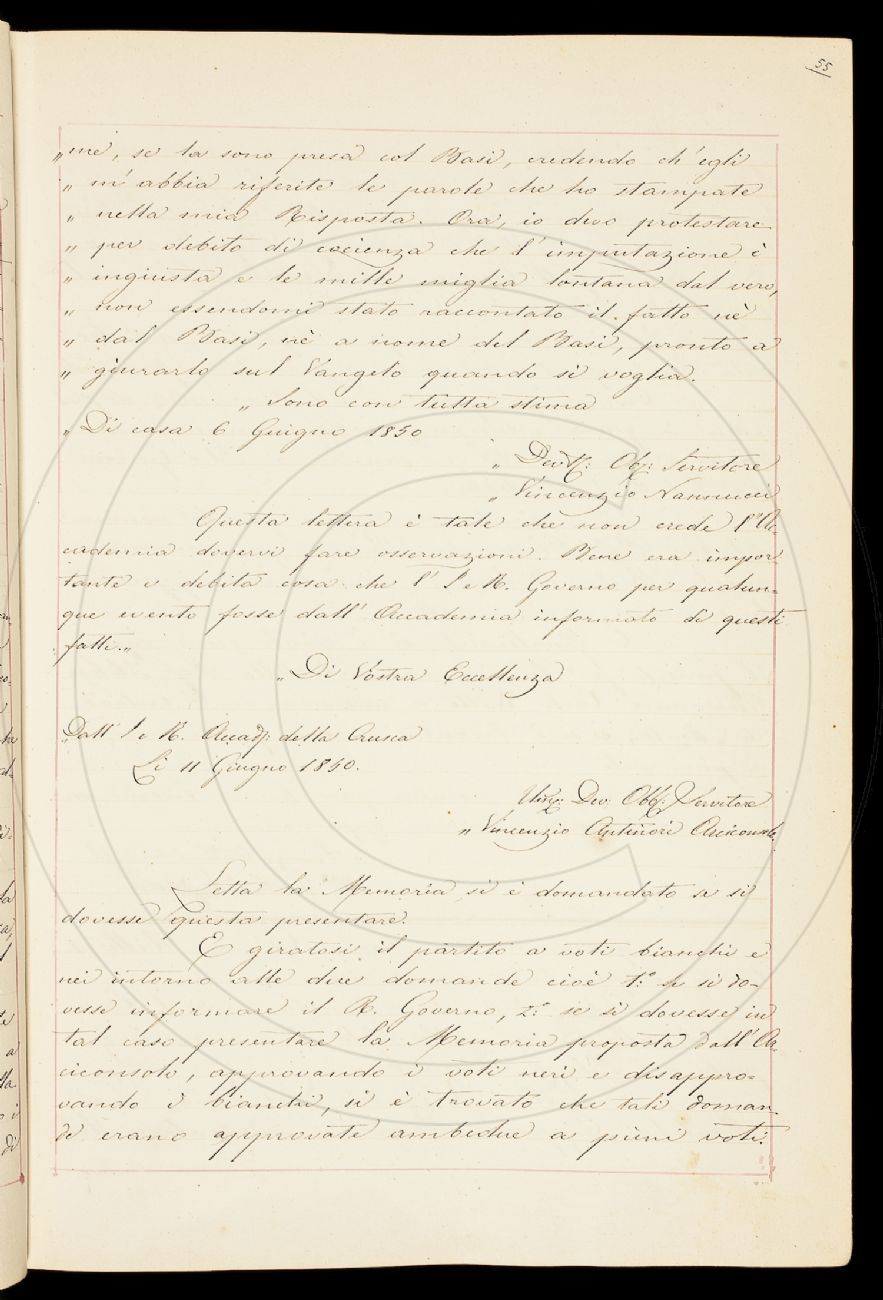 55
„ me, se la sono presa col Basi, credendo ch'egli
„ m'abbia riferite le parole che ho stampate
„ nella mia Risposta. Ora, io devo protestare
„ per debito di coscienza che l'imputazione è
„ ingiusta e le mille miglia lontana dal vero,
„ non essendomi stato raccontato il fatto nè
„ dal Basi, nè a nome del Basi, pronto a
„ giurarlo sul Vangelo quando si voglia.
„ Sono con tutta stima
„ Di casa 6 Giugno 1850
„ Dev: Obb: Servitore
„ Vincenzio Nannucci
Questa lettera è tale che non crede l'Ac-
cademia dovervi fare osservazioni. Bene era impor-
tante e debita cosa che l'I e R. Governo per qualun-
que evento fosse dall'Accademia informato di questi
fatti.„
„ Di Vostra Eccellenza
„ Dall'I e R. Accad: della Crusca
Li 11 Giugno 1850.
Um: Dev: Obb: Servitore
„ Vincenzio Antinori Arciconsolo
Letta la Memoria si è domandato se si
dovesse questa presentare.
E giratosi il partito a voti bianchi e
neri intorno alle due domande cioè 1.º se si do-
vesse informare il R. Governo, 2.º se si dovesse in
tal caso presentare la Memoria proposta dall'Ar-
ciconsolo, approvando i voti neri e disappro-
vando i bianchi, si è trovato che tali doman-
de erano approvate ambedue a pieni voti.